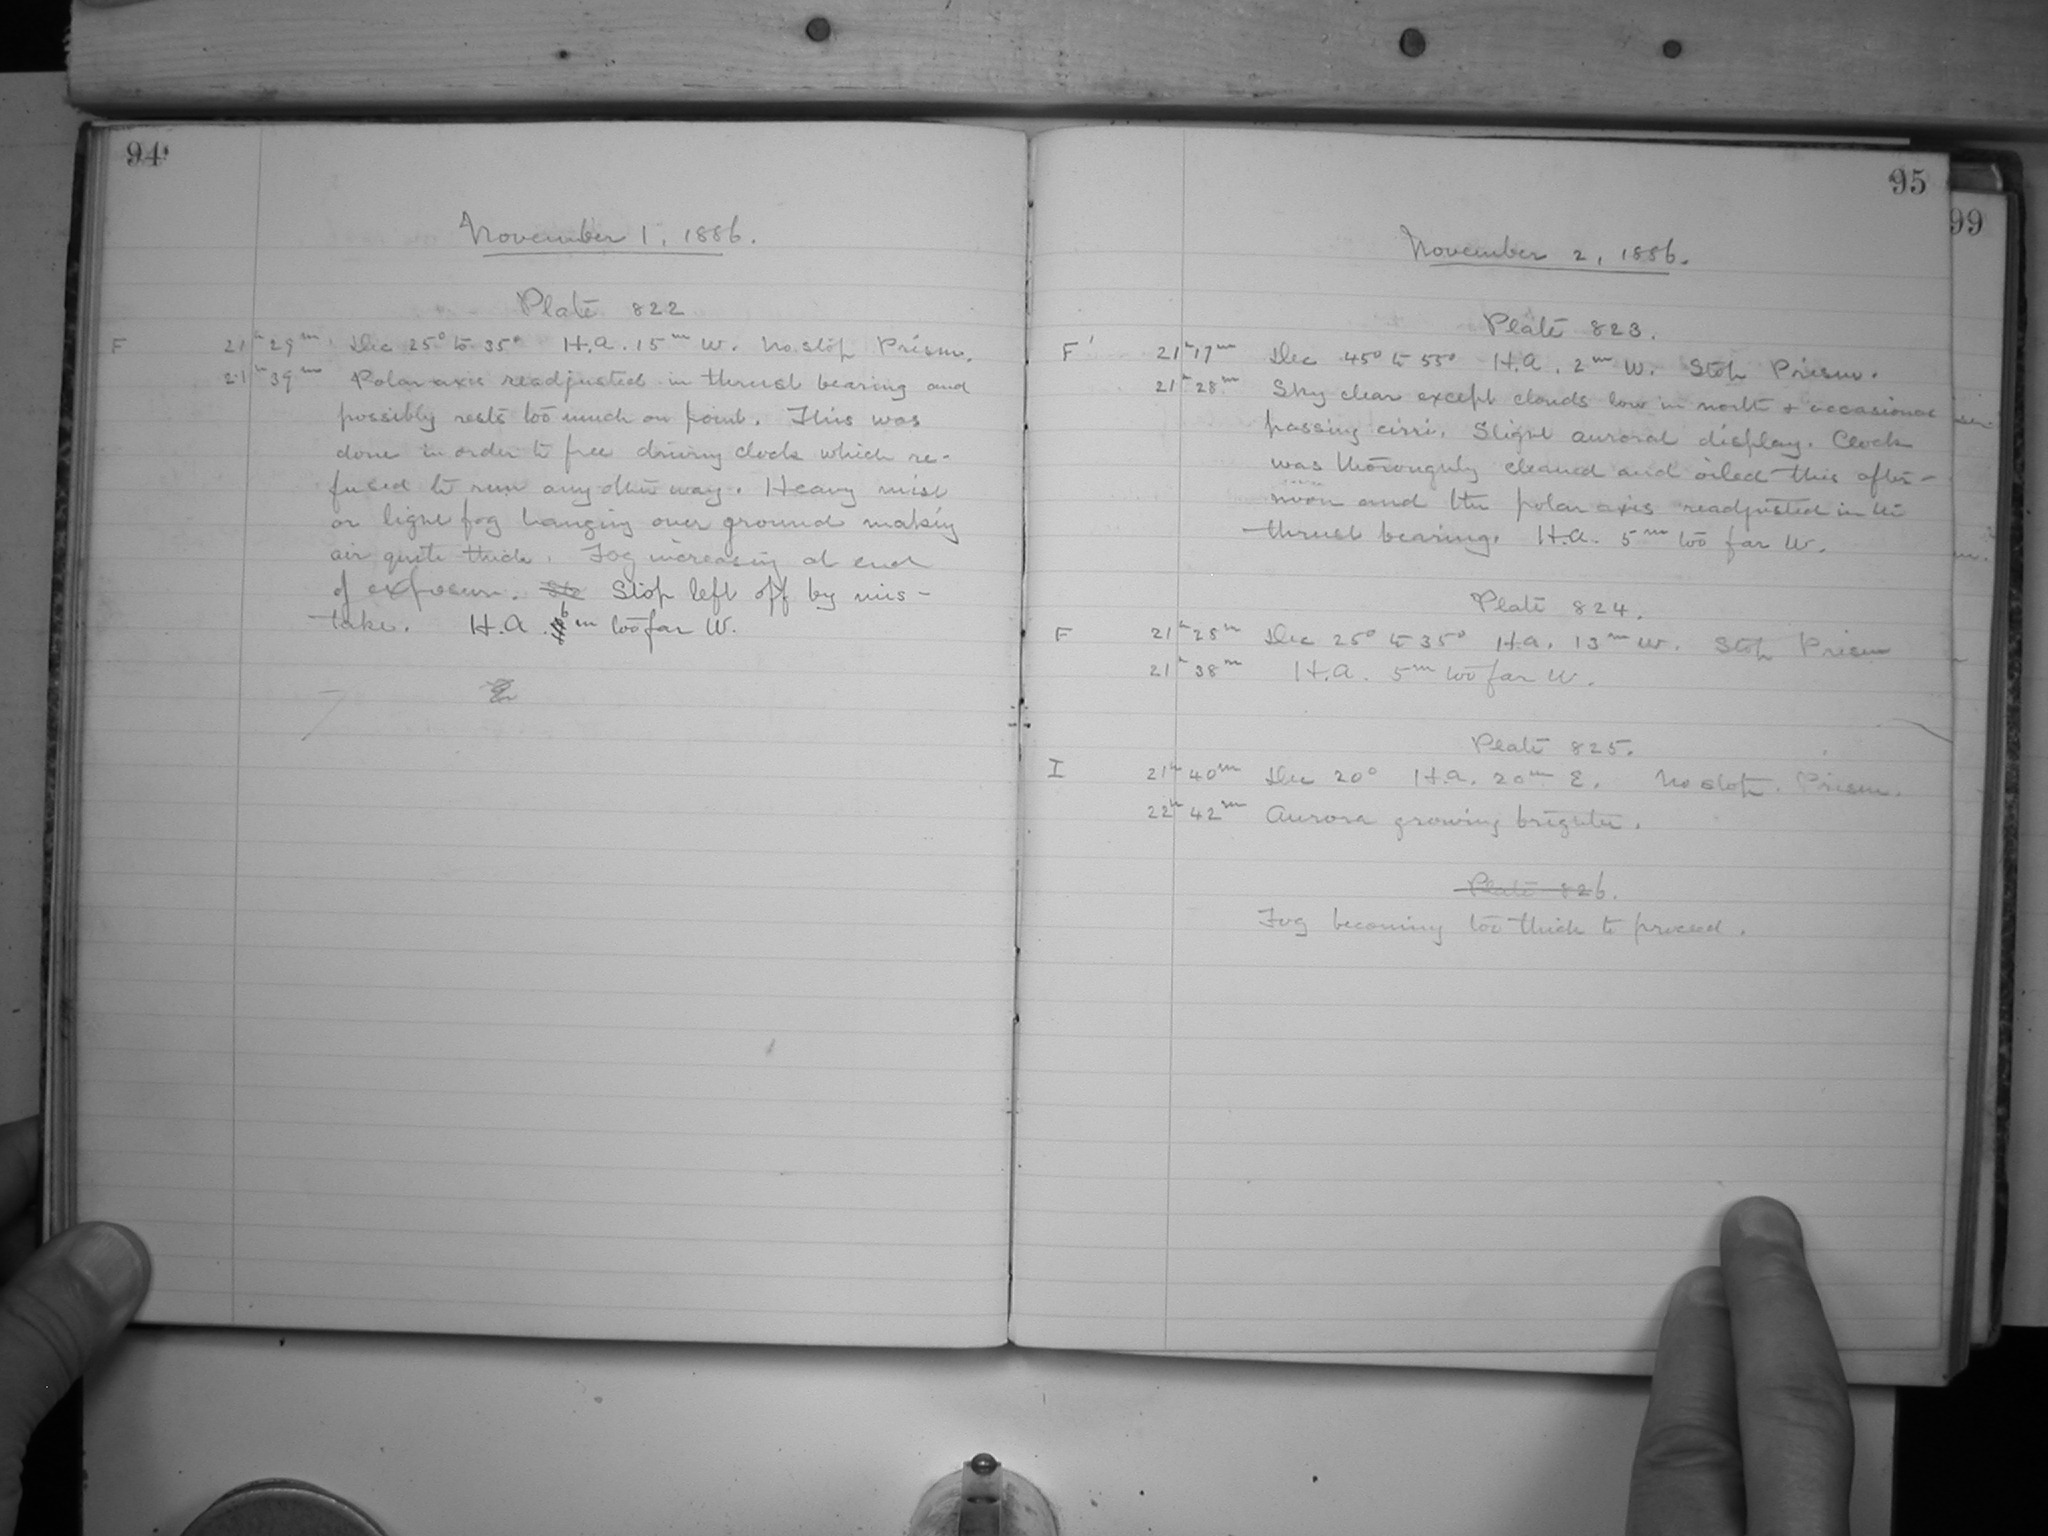 94
November 1, 1886.
Plate 822
F 21h 29m Dec 25° to 35° H.A. 15m W. No stop Prism.
21h 39m Polar axis readjusted in thrust bearing and
possibly rests too much on point. This was
done in order to free driving clock which re-
fused to run any other way. Heavy mist
or light fog hanging over ground making
air quite thick. Fog increasing at end
of exposure. Stop left off by mis-
take. H.A. 6m too far W.
95
99
November 2, 1886.
Plate 823.
F' 21h 17m Dec 45° to 55° H.A. 2m W. Stop Prism.
21h 28m Sky clear except clouds low in north + occasional
passing cirri. Slight auroral display. Clock
was thoroughly cleaned and oiled this after-
noon and the polar axis readjusted in the
thrust bearing. H.A. 5m too far W.
Plate 824.
F 21h 28m Dec 25° to 35° H.A. 13m W. Stop Prism
21h 38m H.A. 5m too far W.
Plate 825.
I 21h 40m Dec 20° H.A. 20m E. No stop. Prism.
22h 42m Aurora growing brighter.
Plate 826.
Fog becoming too thick to proceed.